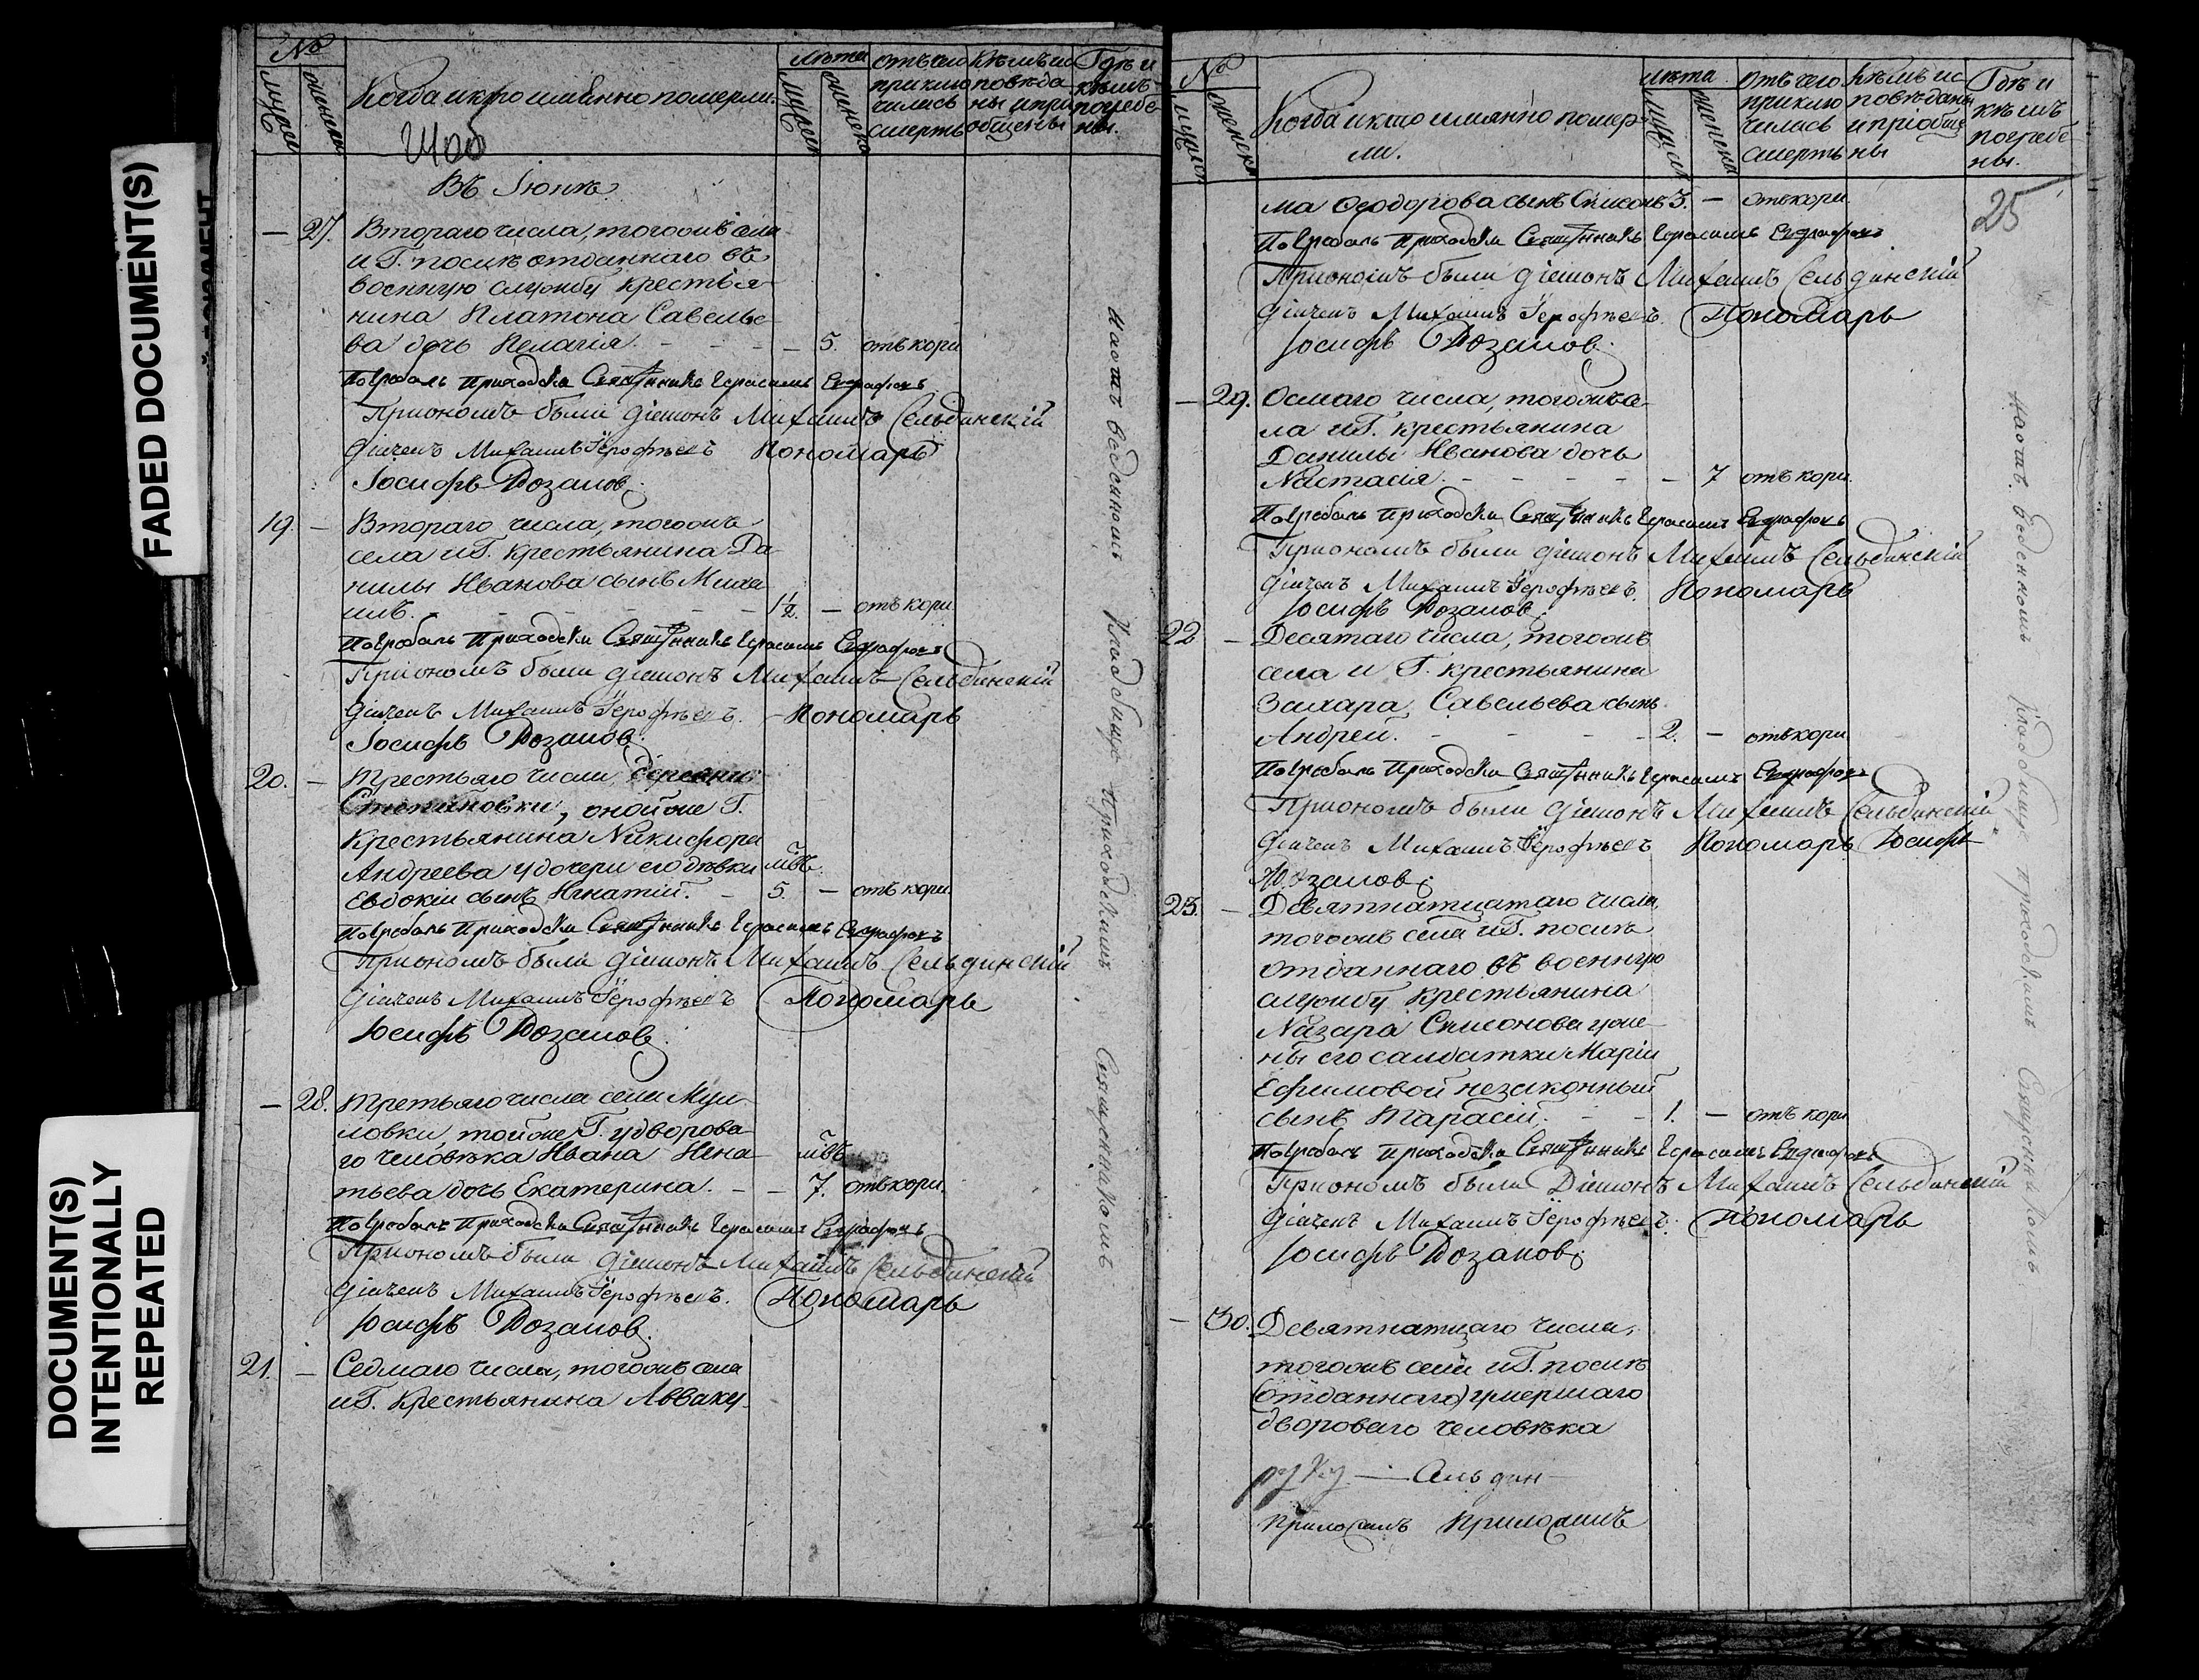 FADED DOCUMENT(S)
DOCUMENT(S)
INTENTIONALLY
REPEATED
№
мужеск
женска
Когда и кто имянно померли.
лѣта
мужеск
женска
отъ чего
приклю
чилась
смерть
кѣмъ ис
повѣда
ны и при
общены
Гдѣ и
кѣмъ
погребе
ны.
Въ Іюнѣ
— 27. Втораго числа, тогожъ села
и Г. послѣ отданнаго въ
военную службу крестья-
нина Платона Савелье-
ва дочь Пелагія. — 5. отъ кори
Погребалъ приходскій Священникъ Герасимъ Евграфовъ
При ономъ были Діяконъ Михаилъ Сельдинскій
Діячекъ Михаилъ Ерофѣевъ Пономарь
Іосифъ Розановъ.
19. — Втораго числа, тогожъ
села и Г. крестьянина Да-
нилы Иванова сынъ Миха-
илъ. 1/2. — отъ кори
Погребалъ приходскій Священникъ Герасимъ Евграфовъ
При ономъ были Діяконъ Михаилъ Сельдинскій
Діячекъ Михаилъ Ерофѣевъ. Пономарь
Іосифъ Розановъ.
20. — Третьяго числа, деревни
Степановки, онойже Г.
Крестьянина Никифора
Андреева у дочери его дѣвки мѣс.
Евдокіи сынъ Игнатій. — 5. — отъ кори
Погребалъ приходскій Священникъ Герасимъ Евграфовъ
При ономъ были Діяконъ Михаилъ Сельдинскій
Діячекъ Михаилъ Ерофѣевъ Пономарь
Іосифъ Розановъ.
— 28. Третьяго числа села
ловки, тойже Г. у дворова-
го человѣка Ивана Игна- мѣс.
тьева дочь Екатерина. — — 7. отъ кори.
Погребалъ приходскій Священникъ Герасимъ Евграфовъ
При ономъ были Діяконъ Михаилъ Сельдинскій
Діячекъ Михаилъ Ерофѣевъ. Пономарь
Іосифъ Розановъ.
21. — Седмаго числа, тогожъ села
и Г. Крестьянина Авваку-
На отведенномъ кладбищѣ приходскимъ Священникомъ
№
мужеск
женска
Когда и кто имянно помер-
ли.
лѣта
мужеск
женска
отъ чего
приклю
чилась
смерть
кѣмъ ис-
повѣданы
и пріобще
ны
Гдѣ и
кѣмъ
погребе-
ны.
25
ма Ѳеодорова сынъ Симеонъ 3. — отъ кори.
Погребалъ приходскій Священникъ Герасимъ Евграфовъ
При ономъ были Діяконъ Михаилъ Сельдинскій
Діячекъ Михаилъ Ерофѣевъ. Пономарь
Іосифъ Розановъ.
— 29. Осмаго числа, тогожъ се-
ла и Г. крестьянина
Данилы Иванова дочь
Настасія. — — — 7 отъ кори.
Погребалъ приходскій Священникъ Герасимъ Евграфовъ
При ономъ были Діяконъ Михаилъ Сельдинскій
Діячекъ Михаилъ Ерофѣевъ. Пономарь
Іосифъ Розановъ.
22 — Десятаго числа, тогожъ
села и Г. крестьянина
Захара Савельева сынъ
Андрей. — — 2. — отъ кори
Погребалъ приходскій Священникъ Герасимъ Евграфовъ
При ономъ были Діяконъ Михаилъ Сельдинскій
Діячекъ Михаилъ Ерофѣевъ Пономарь Іосифъ
Розановъ.
23. — Девятнатцатаго числа
тогожъ села и Г. послѣ
отданнаго въ военную
службу крестьянина
Назара Симонова у же-
ны его салдатки Маріи
Ефимовой незаконный
сынъ Тарасій. — 1. — отъ кори
Погребалъ приходскій Священникъ Герасимъ Евграфовъ
При ономъ были Діяконъ Михаилъ Сельдинскій
Діячекъ Михаилъ Ерофѣевъ. Пономарь
Іосифъ Розановъ.
— 30. Девятнатцаго числа,
тогожъ села и Г. послѣ
(отданнаго) умершаго
двороваго человѣка
руку — Сельдин
приложилъ приложилъ
На отведенномъ кладбищѣ приходскимъ Священникомъ